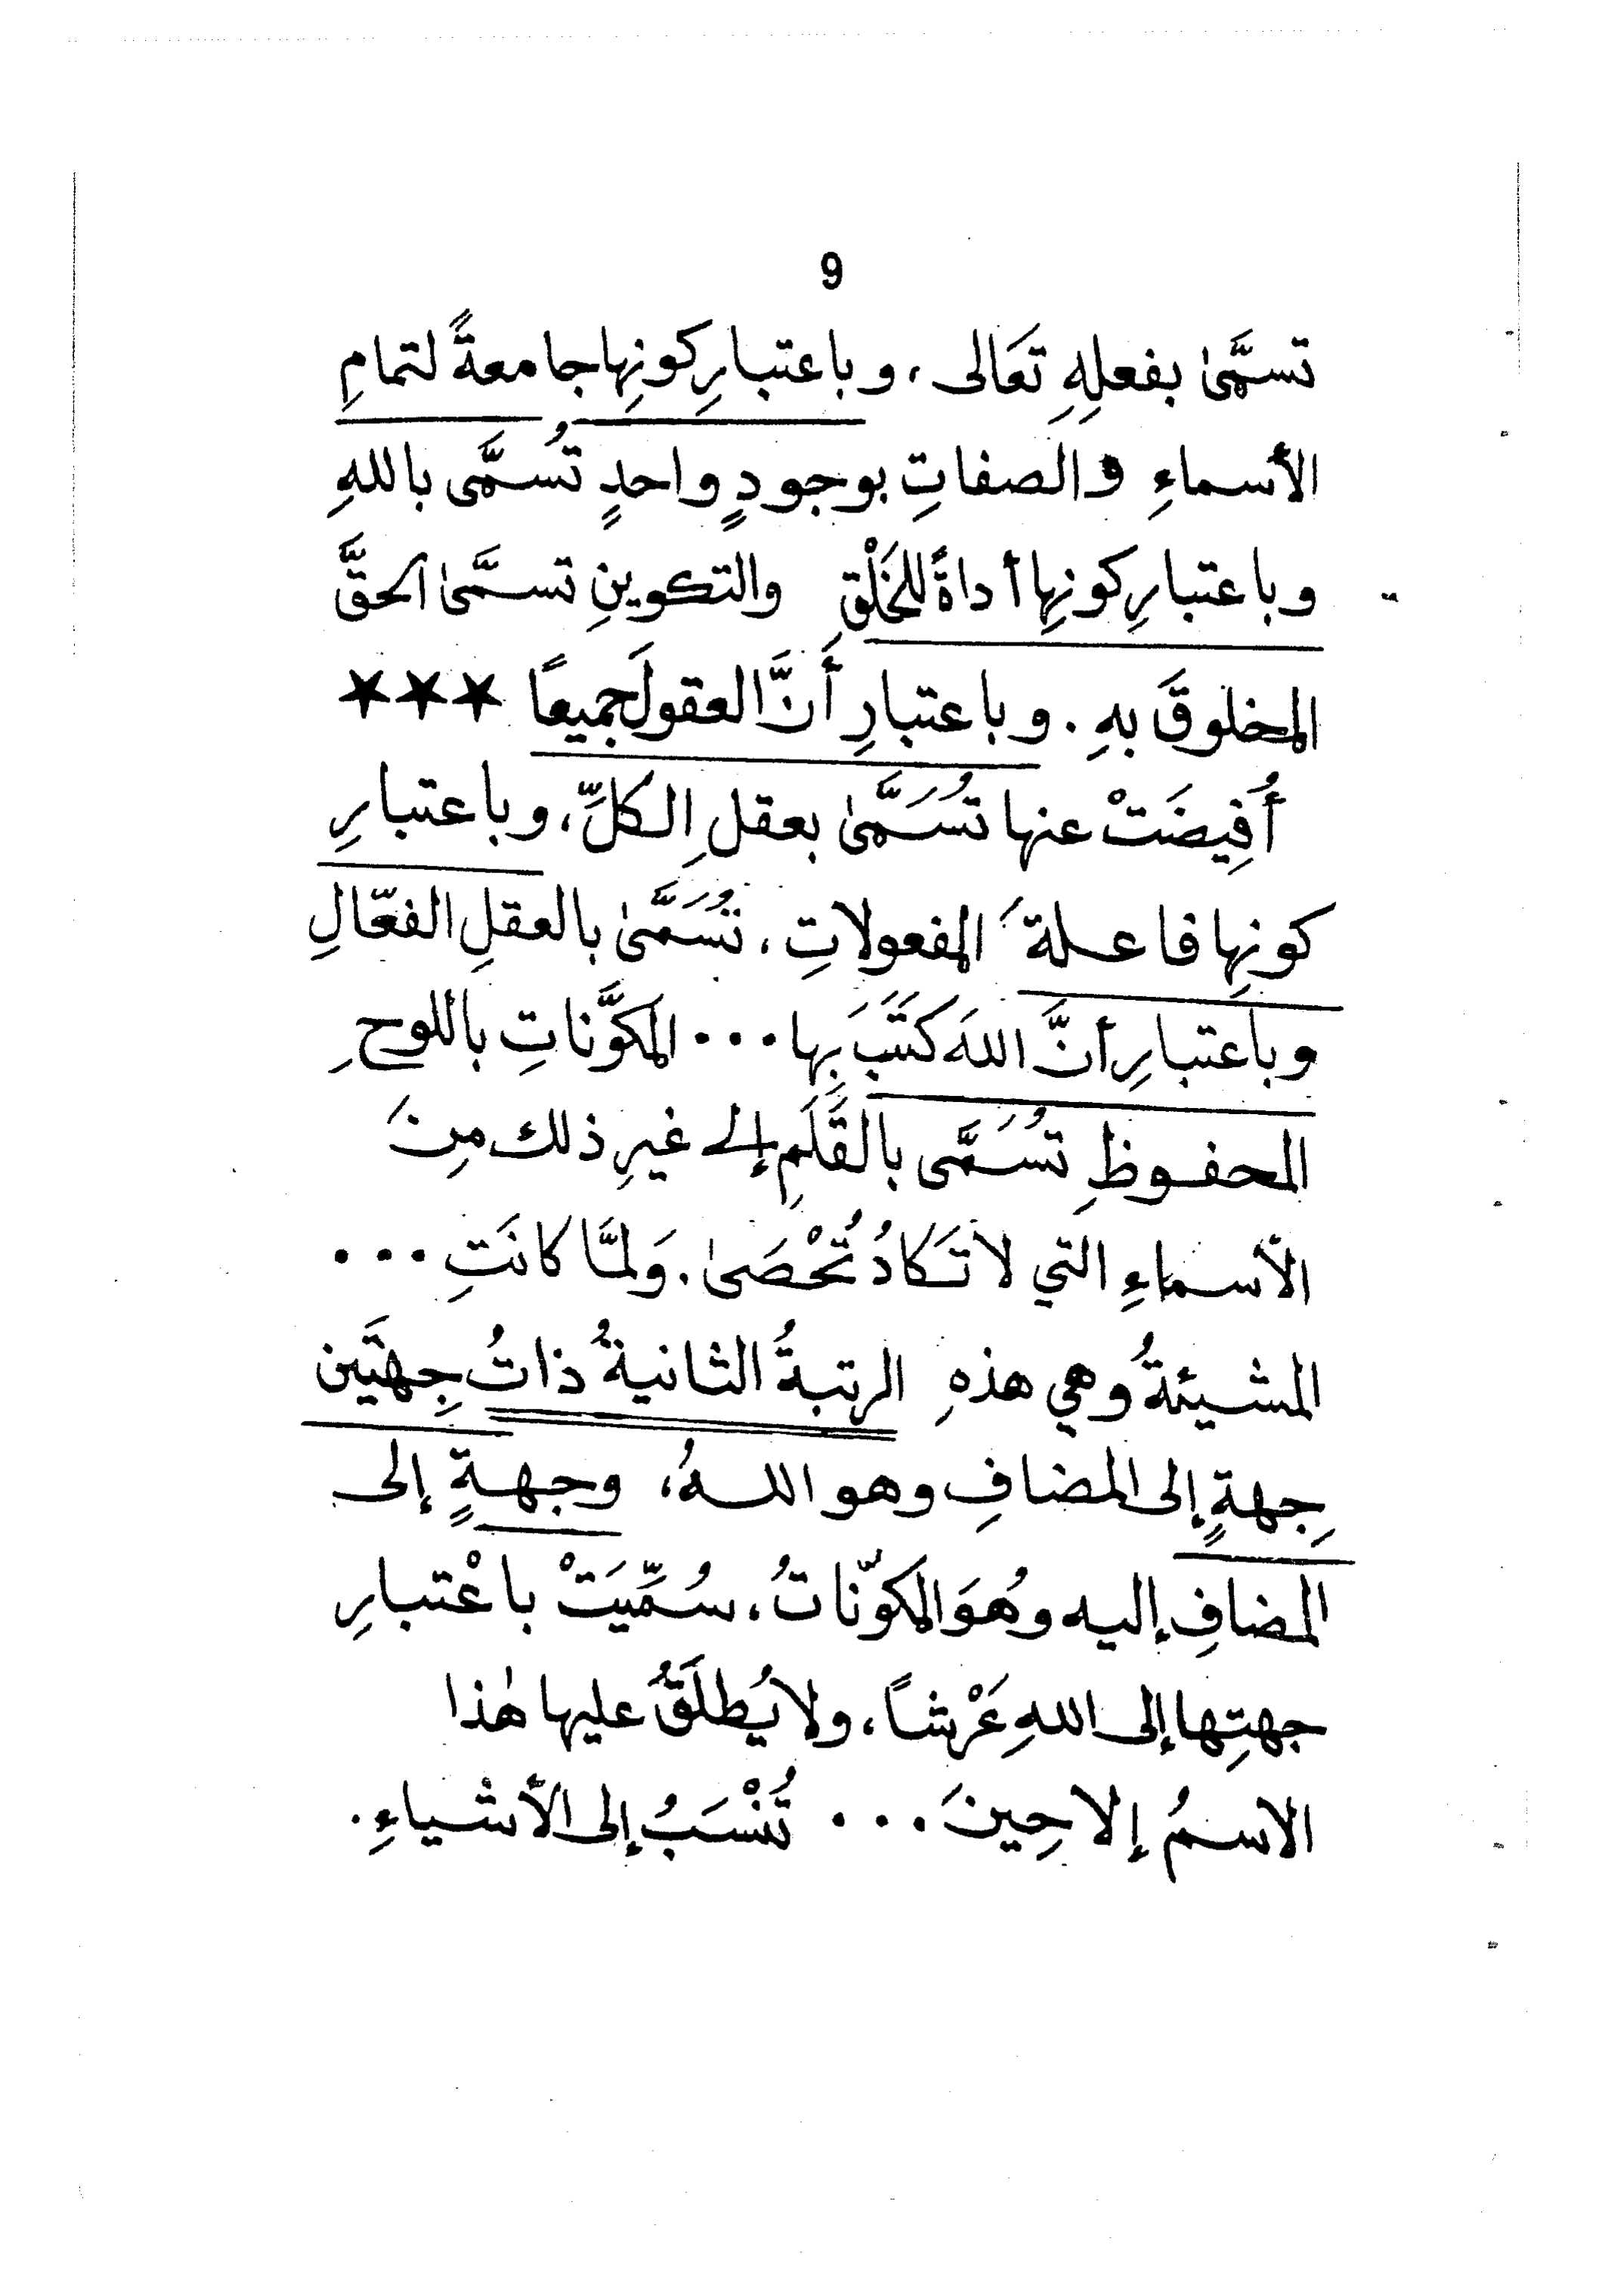 9
تسمَّىٰ بفعلِهِ تعَالى، وباعتبارِ كونِها جامعةً لتمامِ
الأسماءِ والصفاتِ بوجودٍ واحدٍ تُسمَّى باللهِ
وباعتبارِ كونِها أداةً للخَلْقِ والتكوينِ تسمَّىٰ الحقَّ
المخلوقَ بهِ. وباعتبارِ أَنَّ العقولَ جميعاً ★★★
أُفِيضَتْ عنها تُسَمَّىٰ بعقلِ الكلِّ، وباعتبارِ
كونِها فاعلةَ المفعولاتِ، تُسَمَّىٰ بالعقلِ الفعّالِ
وباعتبارِ أنَّ اللهَ كَتَبَ بِها... المكوَّناتِ باللوحِ
المحفوظِ تُسَمَّى بالقَلَمِ إلى غيرِ ذلك مِنَ
الأسماءِ التي لا تَكادُ تُحْصَىٰ. وَلمَّا كانَتِ...
المشيئةُ وهي هذهِ الرتبةُ الثانيةُ ذاتُ جِهتَين
جِهةٍ إلى المضافِ وهو اللهُ، وجهةٍ إلى
المضافِ إليه وهُوَ المكوّناتُ، سُمِّيَتْ باعْتبارِ
جهتِها إلى اللهِ عَرْشاً، ولا يُطلَقُ عليها هٰذا
الاسمُ إلا حِينَ... تُنْسَبُ إلى الأشياءِ.